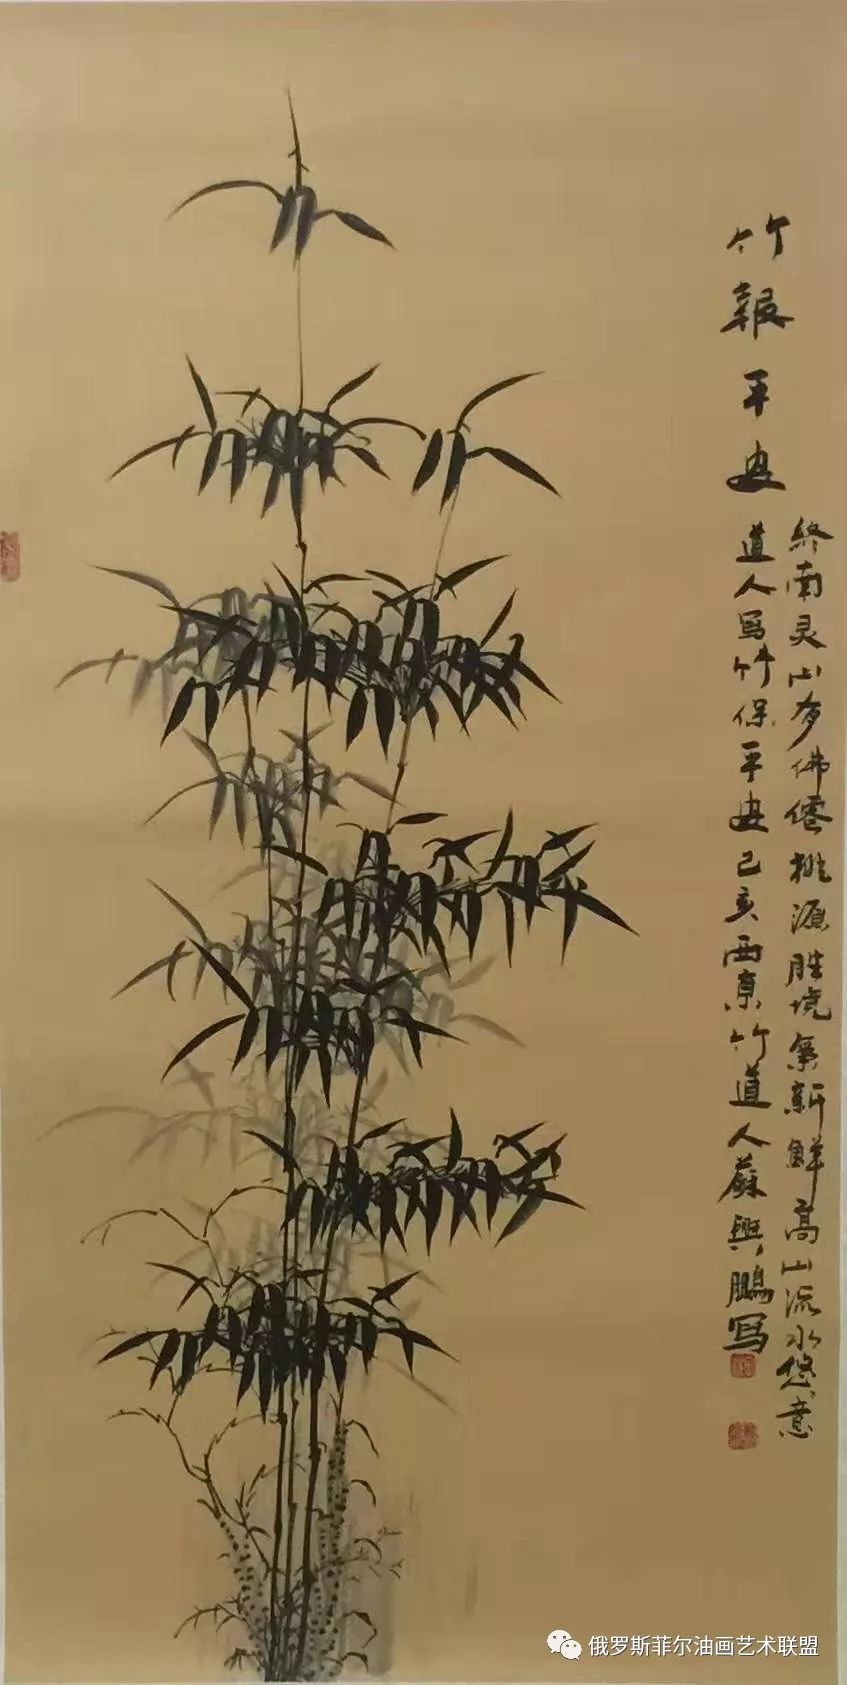 竹報平安
終南灵山多佛僊桃源胜境氣新鮮高山流水悠意
道人写竹保平安己亥西京竹道人蘇興鵬写
俄罗斯菲尔油画艺术联盟